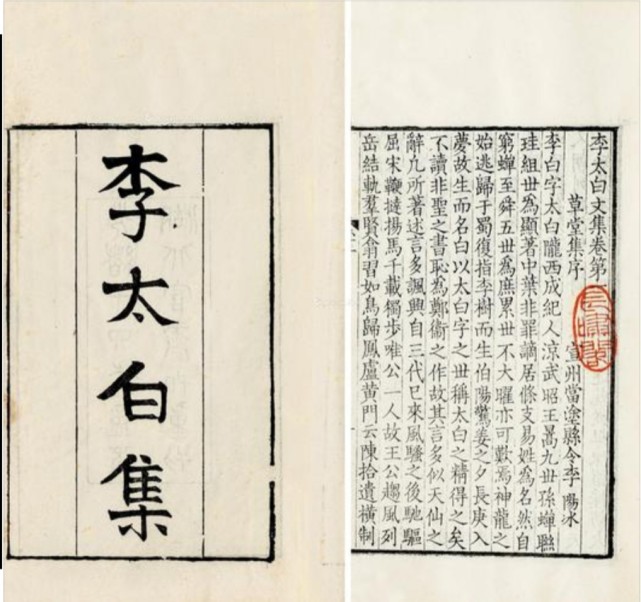 李太白集
李太白文集卷第
草堂集序
宣州當塗縣令李 陽冰
李白字太白隴西成紀人涼武昭王暠九世孫蟬聯
珪組世為顯著中葉非罪謫居條支易姓為名然自
窮蟬至舜五世為庶累世不大曜亦可歎焉神龍之
始逃歸于蜀復指李樹而生伯陽驚姜之夕長庚入
夢故生而名白以太白字之世稱太白之精得之矣
不讀非聖之書恥為鄭衛之作故其言多似天仙之
辭凡所著述言多諷興自三代已來風騷之後馳驅
屈宋鞭撻揚馬千載獨步唯公一人故王公趨風列
岳結軌羣賢翕習如鳥歸鳳盧黃門云陳拾遺橫制